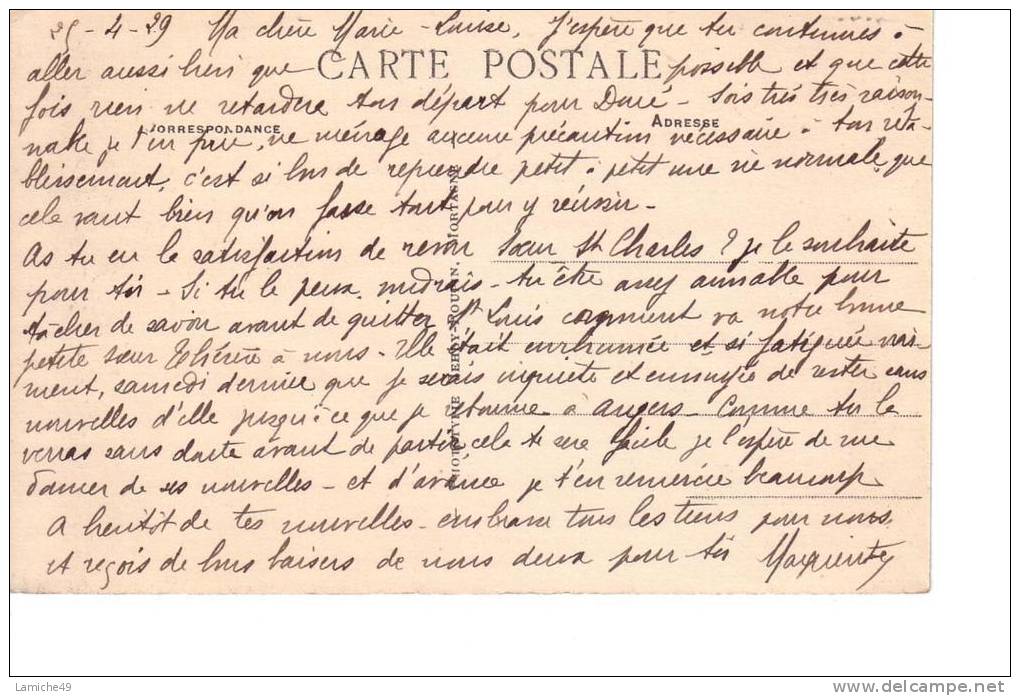 25-4-29 Ma chère Marie-Louise, J'espère que tu continues à
CARTE POSTALE
aller aussi bien que possible et que cette
fois rien ne retardera ton départ pour Doué - Sois très très raison-
CORRESPONDANCE
ADRESSE
nable je t'en prie, ne ménage aucune précaution nécessaire à ton réta-
blissement, c'est si bon de reprendre petit à petit une vie normale, que
cela vaut bien qu'on fasse tout pour y réussir -
As tu eu la satisfaction de revoir Sœur St Charles ? je le souhaite
pour toi - Si tu le peux, voudrais-tu être assez aimable pour
tâcher de savoir avant de quitter St Louis comment va notre bonne
petite sœur Thérèse à nous - Elle était enrhumée et si fatiguée vrai-
ment, samedi dernier que je serais inquiète et ennuyée de rester sans
nouvelles d'elle jusqu'à ce que je retourne à Angers - Comme tu la
verras sans doute avant de partir cela te sera facile je l'espère de me
donner de ses nouvelles - et d'avance je t'en remercie beaucoup
A bientôt de tes nouvelles - embrasse tous les tiens pour nous
et reçois de bons baisers de nous deux pour toi
MORTAGNE
Lamiche49
www.delcampe.net